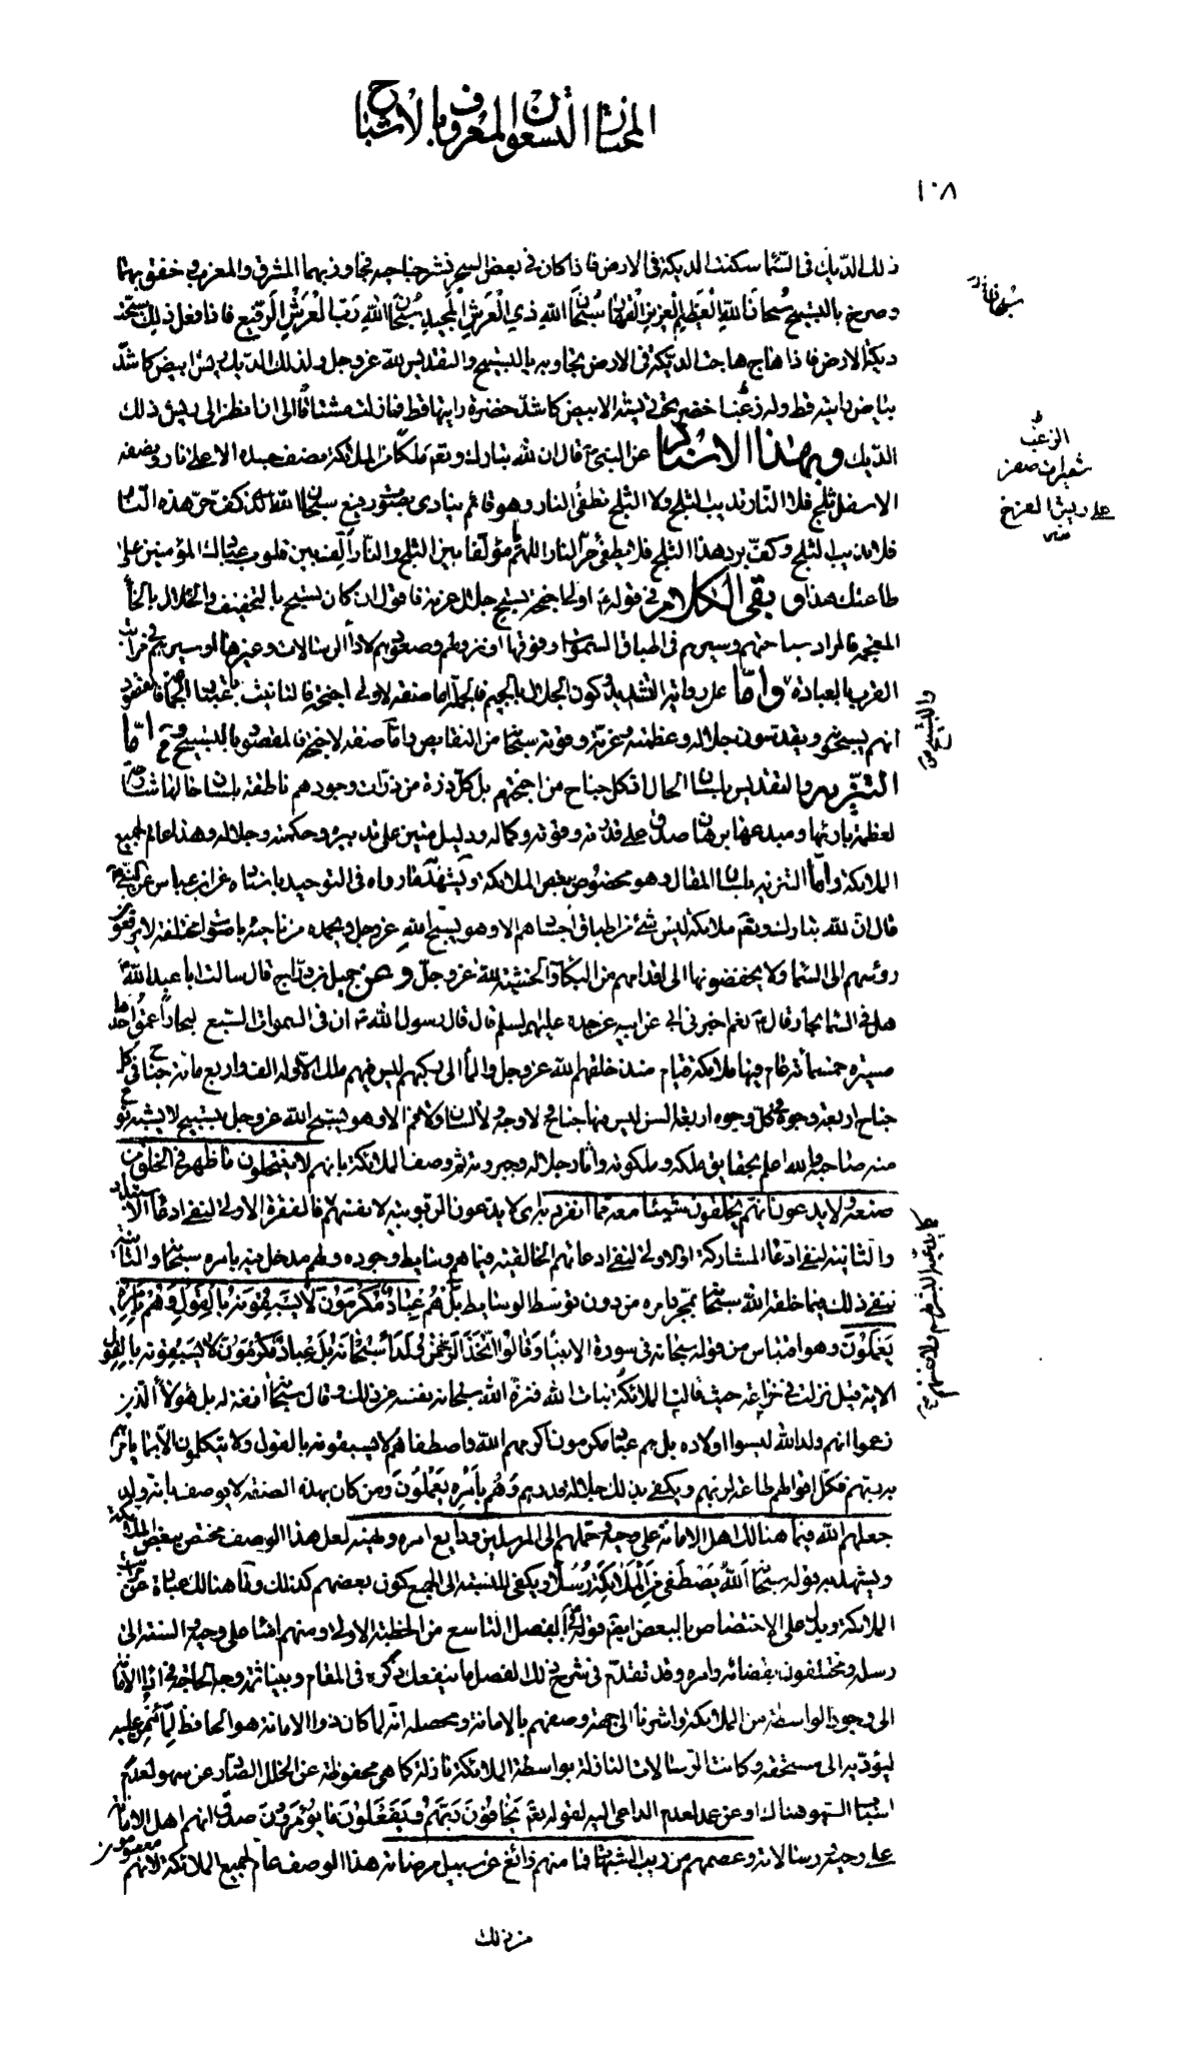 المختار التسعون المعروف بالاشباح
١٠٨
ذلك الديك في السماء سكنت الديكة في الارض فاذا كان في بعض السحر نشر جناحيه فجاوز بهما المشرق والمغرب وخفق بهما
وصرخ بالتسبيح سُبحانَ اللهِ الْعَظيمِ الْعَزيزِ الْقَهّارِ سُبْحانَ اللهِ ذِي الْعَرْشِ الْمَجيدِ سُبْحانَ اللهِ رَبِّ الْعَرْشِ الرَّفيعِ فاذا فعل ذلك سبّحت
ديكة الارض فاذا هاج هاجت الديكة في الارض تجاوبه بالتسبيح والتقديس لله عز وجل ولذلك الديك ريش ابيض كاشدّ
بياض رايته قط وله زغب اخضر تحت ريشه الابيض كاشدّ خضرة رايتها قط فما زلت مشتاقا الى ان انظر الى ريش ذلك
الديك وبهذا الاسناد عن النبي ص قال ان لله تبارك وتعالى ملكا من الملائكة نصف جسده الاعلى نار ونصفه
الاسفل ثلج فلا النار تذيب الثلج ولا الثلج تطفئ النار وهو قائم ينادى بصوت رفيع سبحان الله الذى كفّ حرّ هذه النار
فلا تذيب الثلج وكفّ برد هذا الثلج فلا يطفئ حرّ النار اللهم يا مؤلّفا بين الثلج والنار ألّف بين قلوب عبادك المؤمنين على
طاعتك هذا وبقى الكلام في قوله ع اولى اجنحة تسبّح جلال عزته فاقول ان كان تسبح بالتخفيف والخلال بالخاء
المعجمة فالمراد سباحتهم وسيرهم في اطباق السموات وفوقها او نزولهم وصعودهم لاداء الرسالات وغيرها او سيرهم في مراتب
القرب بالعبادة واما على رواية التشديد وكون الجلال بالجيم فالجملة اما صفة لاولى اجنحة فالتانيث باعتبار الجماعة فالمقصود
انهم يسبحون ويقدسون جلاله وعظمته وعزته وقوته سبحانه من النقايص واما صفة لاجنحة فالمقصود بالتسبيح ح اما
التنزيه والتقديس بلسان الحال اذ كل جناح من اجنحتهم بل كل ذرة من ذرات وجودهم ناطقة بلسان حالها شاهدة
لعظمة بارئها ومبدعها برهان صدق على قدرته وقوته وكماله ودليل متين على تدبيره وحكمته وجلاله وهذا عام لجميع
الملائكة واما التنزيه بلسان المقال وهو مخصوص ببعض الملائكة ويشهد به ما رواه في التوحيد باسناده عن ابن عباس عن النبي ص
قال ان لله تبارك وتعالى ملائكة ليس شئ من اطباق اجسادهم الا وهو يسبّح الله عز وجل ويحمده من ناحية باصوات مختلفة لا يرفعون
رؤسهم الى السماء ولا يخفضونها الى اقدامهم من البكاء والخشية لله عز وجل وعن جميل بن دراج قال سالت ابا عبد الله ع
هل في السماء بحار قال نعم اخبرنى ابى عن ابيه عن جده عليهم السلم قال قال رسول الله ص ان في السموات السبع لبحارا عمق احدها
مسيرة خمسمائة عام فيها ملائكة قيام منذ خلقهم الله عز وجل والماء الى ركبهم ليس فيهم ملك الا وله الف واربع مائة جناح في كل
جناح اربعة وجوه في كل وجه اربعة السن ليس منها جناح ولا وجه ولا لسان ولا فم الا وهو يسبح الله عز وجل بتسبيح لا يشبه نوع
منه صاحبه والله اعلم بحقايق ملكه وملكوته واثار جلاله وجبروته ثم وصف الملائكة بانهم لا ينتحلون ما ظهر في الخلق من
صنعه ولا يدعون انهم يخلقون شيئا معه مما انفرد به اى لا يدعون الربوبية لانفسهم فالفقرة الاولى لنفى ادعاء الاستبداد
والثانية لنفى ادعاء المشاركة او الاولى لنفى ادعائهم الخالقية فيما هم وسايط وجوده ولهم مدخل فيه بامره سبحانه والثانية
نفى ذلك فيما خلقه الله سبحانه بمجرد امره من دون توسط الوسايط بَلْ هُمْ عِبادٌ مُكْرَمُونَ لا يَسْبِقُونَهُ بِالْقَوْلِ وَهُمْ بِاَمْرِهِ
يَعْمَلُونَ وهو اقتباس من قوله سبحانه في سورة الانبياء وَقالُوا اتَّخَذَ الرَّحْمنُ وَلَدًا سُبْحانَهُ بَلْ عِبادٌ مُكْرَمُونَ لا يَسْبِقُونَهُ بِالْقَوْلِ
الاية قيل نزلت في خزاعة حيث قالت الملائكة بنات الله فنزه الله سبحانه نفسه عن ذلك وقال سبحانه انفة له بل هؤلاء الذين
زعموا انهم ولد الله ليسوا اولاده بل هم عباد مكرمون اكرمهم الله واصطفاهم لا يسبقونه بالقول ولا يتكلمون الا بما يامرهم
به ربهم فكل اقوالهم طاعة لربهم ويكفى بذلك جلالة قدرهم وَهُمْ بِاَمْرِهِ يَعْمَلُونَ ومن كان بهذه الصفة لا يوصف بانه ولد
جعلهم الله فيما هنالك اهل الامانة على وحيه وحمّلهم الى المرسلين ودايع امره ونهيه لعل هذا الوصف مختص ببعض الملائكة
ويشهد به قوله سبحانه اَللهُ يَصْطَفي مِنَ الْمَلائِكَةِ رُسُلاً ويكفى للنسبة الى الجميع كون بعضهم كذلك وما هنالك عبارة عن مراتب
الملائكة ويدل على الاختصاص بالبعض ايضا قوله ع في الفصل التاسع من الخطبة الاولى ومنهم امناء على وحيه والسنة الى
رسله ومختلفون بقضائه وامره وقد تقدم في شرح ذلك الفصل ما ينفعك ذكره في المقام وبينا ثمة وجه الحاجة في اداء الامانة
الى وجود الواسطة من الملائكة واشرنا الى جهة وصفهم بالامانة ومحصله انه لما كان ذو الامانة هو الحافظ لما ائتمن عليه
ليؤديه الى مستحقه وكانت الرسالات النازلة بواسطة الملائكة نازلة كما هى محفوظة عن الخلل الصادر عن سهو لعدم
اسباب السهو هناك او عن عمد لعدم الداعى اليه لقوله تعالى يَخافُونَ رَبَّهُمْ وَيَفْعَلُونَ ما يُؤْمَرُونَ صدق انهم اهل الامانة
على وحيه ورسالاته وعصمهم من ريب الشبهات فما منهم زائغ عن سبيل مرضاته هذا الوصف عام لجميع الملائكة لانهم معصومون
من ذلك
الزغب
شعيرات صغر
على ريش الفرخ
والتسبيح